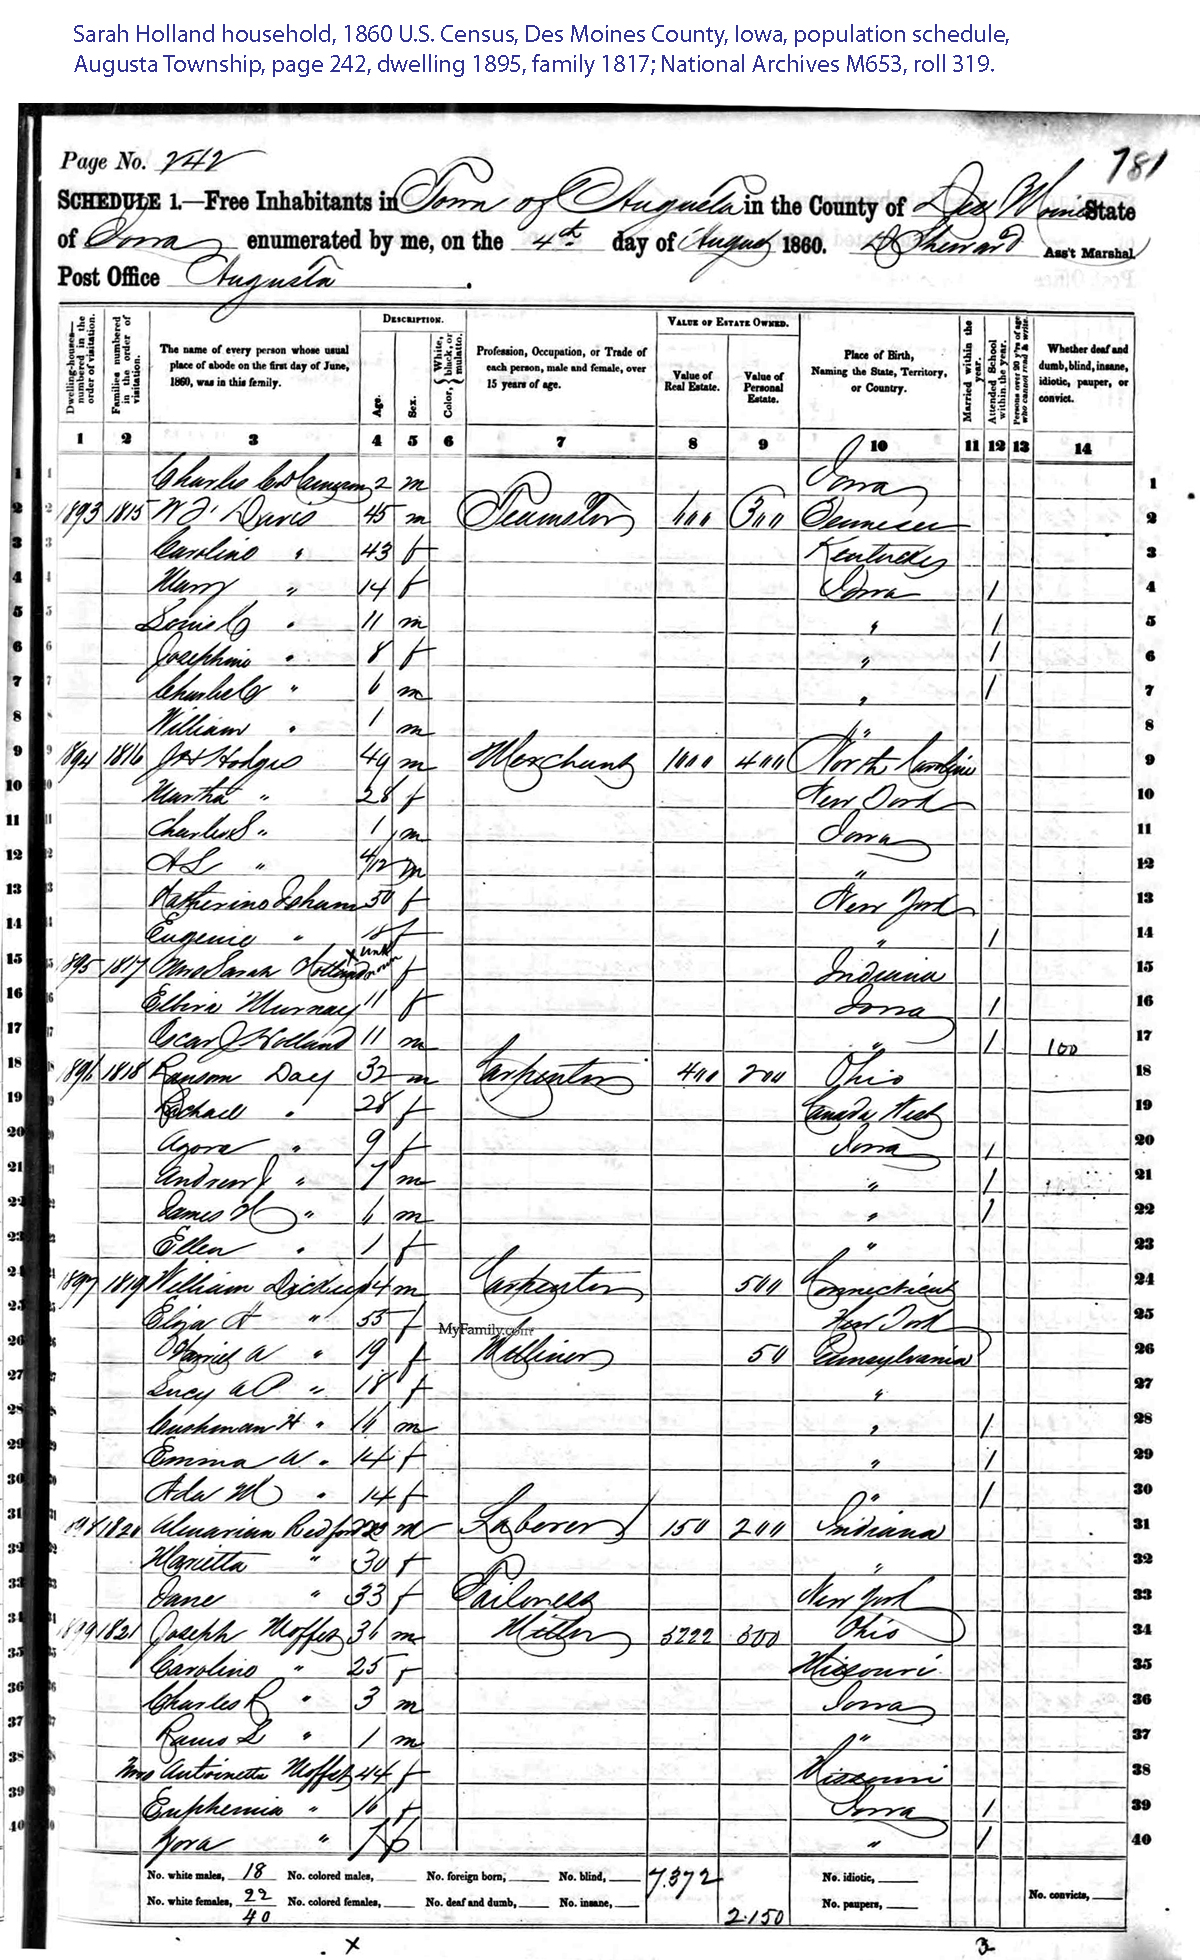 Sarah Holland household, 1860 U.S. Census, Des Moines County, Iowa, population schedule,
Augusta Township, page 242, dwelling 1895, family 1817; National Archives M653, roll 319.
781
Page No. 242
SCHEDULE 1.—Free Inhabitants in Town of Augusta in the County of Des Moines State
of Iowa enumerated by me, on the 4th day of August 1860. Ass't Marshal.
Post Office Augusta.
Dwelling-houses—numbered in the order of visitation.
Families numbered in the order of visitation.
The name of every person whose usual place of abode on the first day of June, 1860, was in this family.
DESCRIPTION.
Age.
Sex.
Color, { White, black, or mulatto.
Profession, Occupation, or Trade of each person, male and female, over 15 years of age.
VALUE OF ESTATE OWNED.
Value of Real Estate.
Value of Personal Estate.
Place of Birth, Naming the State, Territory, or Country.
Married within the year.
Attended School within the year.
Persons over 20 y'rs of age who cannot read & write.
Whether deaf and dumb, blind, insane, idiotic, pauper, or convict.
1 2 3 4 5 6 7 8 9 10 11 12 13 14
1 Charles 2 m Iowa 1
2 1893 1815 W Davis 45 m Teamster 600 300 Tennessee 2
3 Caroline " 43 f Kentucky 3
4 Mary " 14 f Iowa / 4
5 Louis C " 11 m " / 5
6 Josephine " 8 f " / 6
7 Charles C " 6 m " / 7
8 William " 1 m " 8
9 1894 1816 J H Hodges 49 m Merchant 1000 400 North Carolina 9
10 Martha " 28 f New York 10
11 Charles S " 1 m Iowa 11
12 A L " 4/12 m " 12
13 Katherine 50 f New York 13
14 Eugenie " 18 f " / 14
15 1895 1817 Mrs Sarah Holland x unknown f Indiana 15
16 Elvira Murray 11 f Iowa / 16
17 Oscar J Holland 11 m " / 100 17
18 1896 1818 Ransom Day 32 m Carpenter 400 200 Ohio 18
19 Rachael " 28 f Canada West 19
20 Agora " 9 f Iowa / 20
21 Andrew J " 7 m " / 21
22 James W " 6 m " / 22
23 Ellen " 1 f " 23
24 1897 1819 William m Carpenter 500 Connecticut 24
25 Eliza H " 55 f New York 25
MyFamily.com
26 Harriet A " 19 f Milliner 50 Pennsylvania 26
27 Lucy A P " 18 f " 27
28 Cushman H " 16 m " / 28
29 Emma A " 14 f " / 29
30 Ada M " 14 f " / 30
31 1898 1820 Redford m Laborer 150 200 Indiana 31
32 Marietta " 30 f " 32
33 Jane " 33 f Tailoress New York 33
34 1899 1821 Joseph Moffet 36 m Miller 5222 500 Ohio 34
35 Caroline " 25 f Missouri 35
36 Charles R " 3 m Iowa 36
37 L " 1 m " 37
38 Mrs Antoinetta Moffet 44 f Missouri 38
39 Euphemia " 16 f Iowa / 39
40 Zora " 7 f " / 40
No. white males, 18 No. colored males, No. foreign born, No. blind, 7.372 No. idiotic,
No. white females, 22 No. colored females, No. deaf and dumb, No. insane, 2.150 No. paupers, No. convicts,
40
x 3